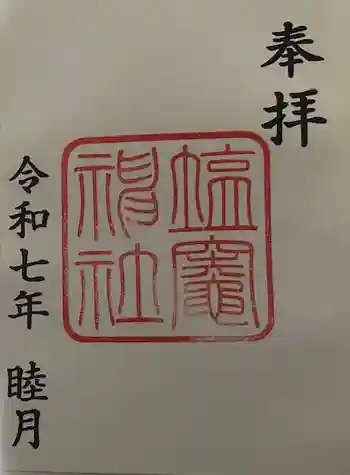 奉拝
蛭竈
神社
令和七年 睦月